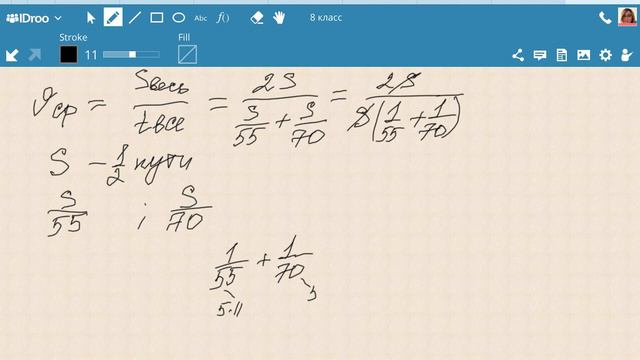 IDroo
Abc
f()
8 класс
Stroke
11
Fill
υср = Sвесь / tвсе = 2S / (S/55 + S/70) = 2S / S(1/55 + 1/70)
S – 1/2 пути
S/55 ; S/70
1/55 + 1/70
5·11